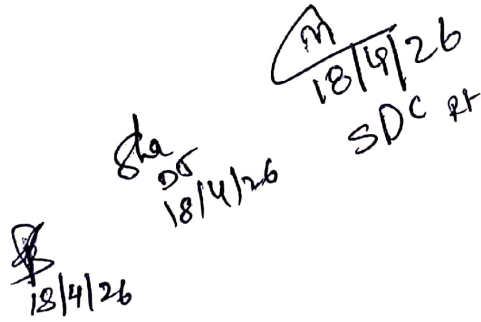 M
18/4/26
SDC Rt
Sha
DS
18/4/26
18/4/26